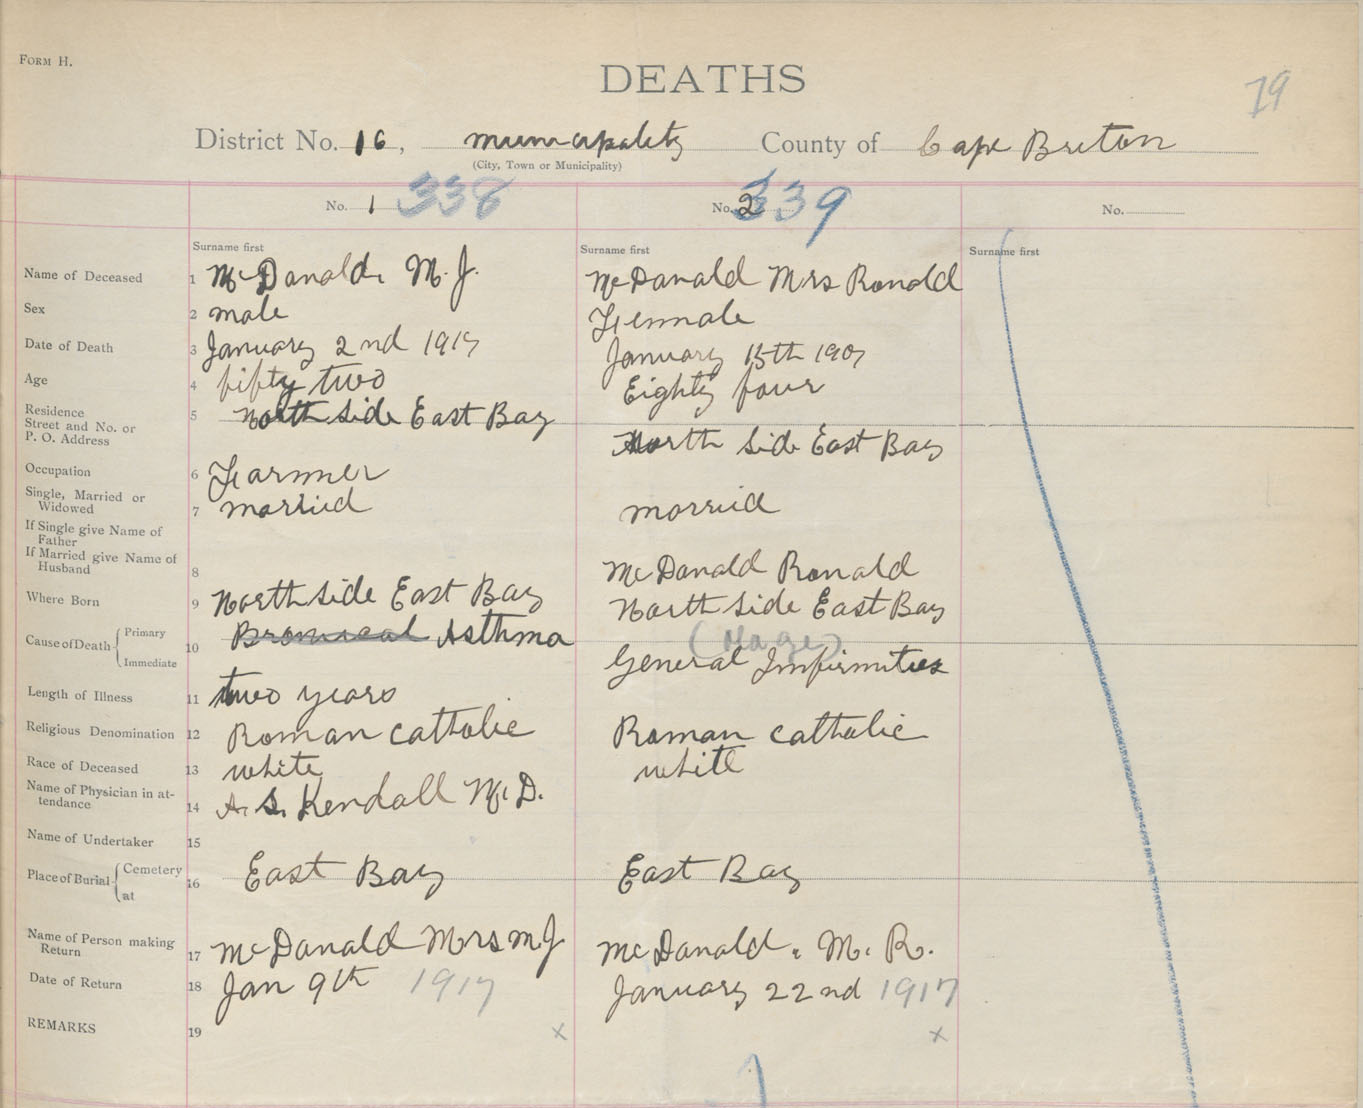 FORM H.
DEATHS
79
District No. 16, municipality County of Cape Breton
(City, Town or Municipality)
No. 1 338
No. 2 339
No.
Surname first
Surname first
Surname first
Name of Deceased 1 McDonald, M. J. McDanald Mrs Ronald
Sex 2 male Female
Date of Death 3 January 2nd 1917 January 15th 1907
Age 4 fifty two Eighty four
Residence
Street and No. or
P. O. Address 5 North Side East Bay North Side East Bay
Occupation 6 Farmer
Single, Married or
Widowed 7 married married
If Single give Name of
Father
If Married give Name of
Husband 8 McDanald Ronald
Where Born 9 North Side East Bay North Side East Bay
Cause of Death { Primary
Immediate 10 Asthma General Infirmities
Length of Illness 11 two years
Religious Denomination 12 Roman catholic Roman catholic
Race of Deceased 13 white white
Name of Physician in at-
tendance 14 A. S. Kendall M. D.
Name of Undertaker 15
Place of Burial { Cemetery
at 16 East Bay East Bay
Name of Person making
Return 17 McDanald Mrs M J McDanald, M. R.
Date of Return 18 Jan 9th 1917 January 22nd 1917
REMARKS 19 x x